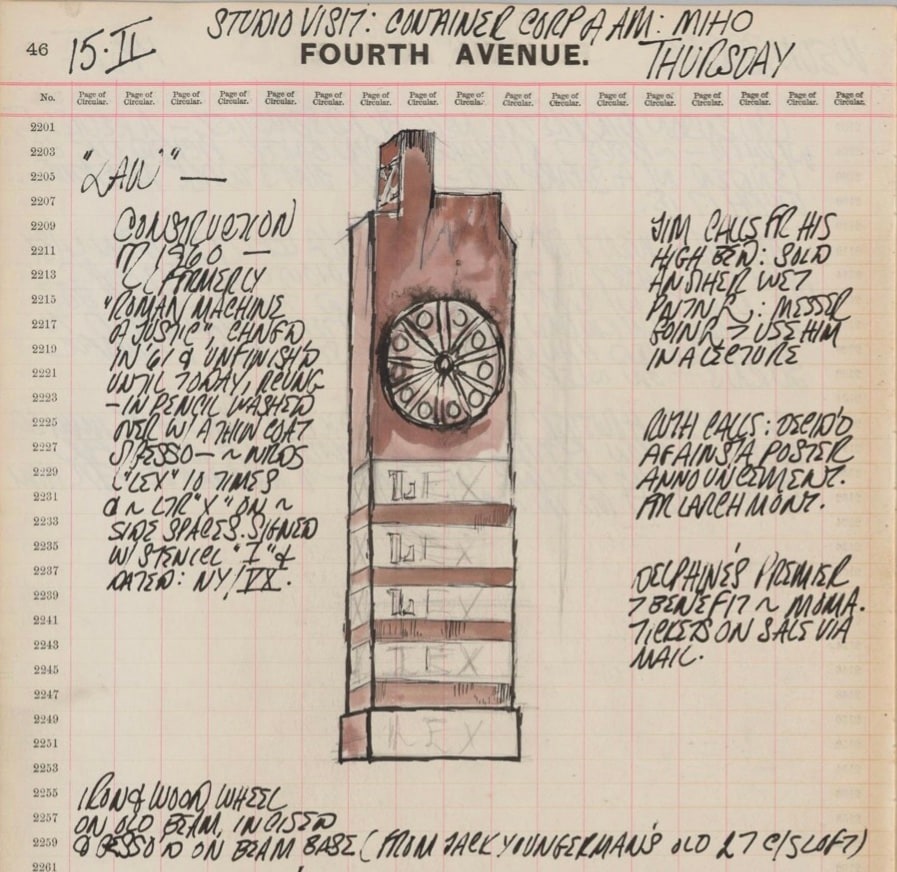 STUDIO VISIT: CONTAINER CORP of AM: MIHO
46 15·II FOURTH AVENUE. THURSDAY
No. Page of Circular. Page of Circular. Page of Circular. Page of Circular. Page of Circular. Page of Circular. Page of Circular. Page of Circular. Page of Circular. Page of Circular. Page of Circular. Page of Circular. Page of Circular. Page of Circular. Page of Circular. Page of Circular. Page of Circular.
2201
2203
2205
2207
2209
2211
2213
2215
2217
2219
2221
2223
2225
2227
2229
2231
2233
2235
2237
2239
2241
2243
2245
2247
2249
2251
2253
2255
2257
2259
2261
"LAW" —
CONSTRUCTION
1960 —
FORMERLY
"ROMAN MACHINE
of JUSTIC", CHNG'D
IN '61 & UNFINISH'D
UNTIL TODAY,
— IN PENCIL WASHED
OVER W/ A THIN COAT
GESSO — ~ WRDS
"LEX" 10 TIMES
& ~ LTR "X" ON ~
SIDE SPACES. SIGNED
W/ STENCIL "I" &
DATED: NY/VX.
LEX
LEX
LEX
LEX
LEX
JIM CALLS FR HIS
HIGH BED: SOLD
ANOTHER WET
PAINTNG: MESSER
GOING 7 USE HIM
IN A LECTURE
RUTH CALLS: DECID'D
AGAINST A POSTER
ANNOUNCEMENT.
FOR LARCHMONT.
DELPHINE'S PREMIER
7 BENEFIT ~ MOMA.
TICKETS ON SALE VIA
MAIL.
IRON & WOOD WHEEL
ON OLD BEAM, INCISED
& GESSO'D ON BEAM BASE (FROM JACK YOUNGERMAN'S OLD 27 C/S LOFT)